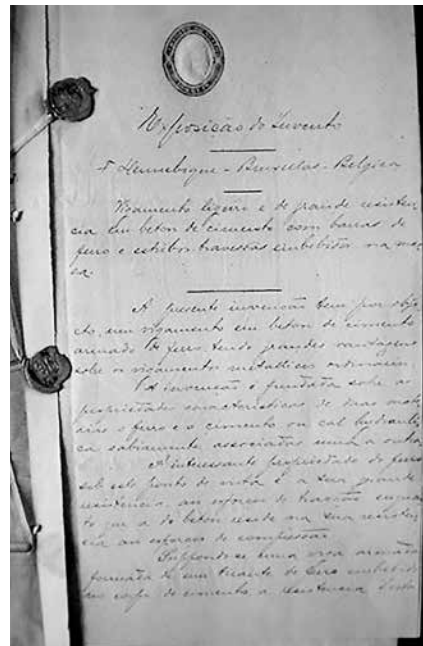 Exposição do Invento
F Hennebique - Bruxellas - Belgica
Vigamento ligeiro e de grande resisten
cia em beton de cimento com barras de
ferro e estribos travessas embebidos na mas
sa.
A presente invenção tem por obje
cto, um vigamento em beton de cimento
armado de ferro, tendo grandes vantagens
sobre os vigamentos metallicos ordinarios.
A invenção é fundada sobre as
propriedades caracteristicas de duas mate
rias o ferro e o cimento ou cal hydrauli
ca sabiamente associadas uma a outra
A interessante propriedade do ferro
sob este ponto de vista é a sua grande
resistencia ao esforço de tracção enquan
to que a do beton reside na sua resisten
cia ao esforço de compressão.
Suppondo-se uma viga armada
formada de um tirante de ferro embebido
no corpo de cimento, a resistencia